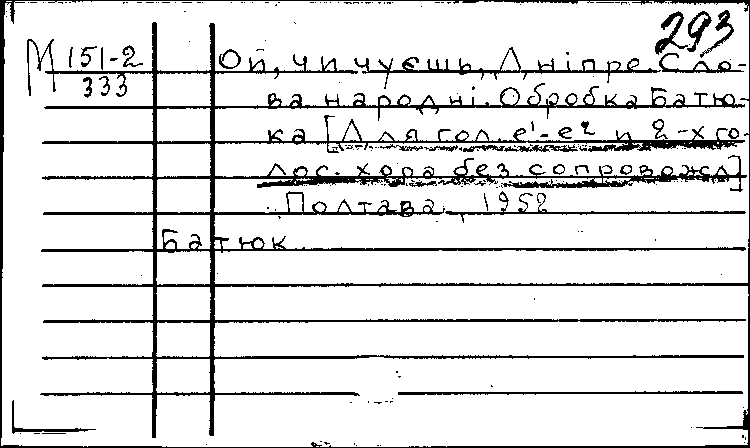 293
М 151-2
333
Ой, чи чуєшь, Дніпре. Сло-
ва народні. Обробка Батю-
ка [Для гол. e¹-e² и 2-х го
лос. хора без сопровожд]
Полтава, 1952
Батюк